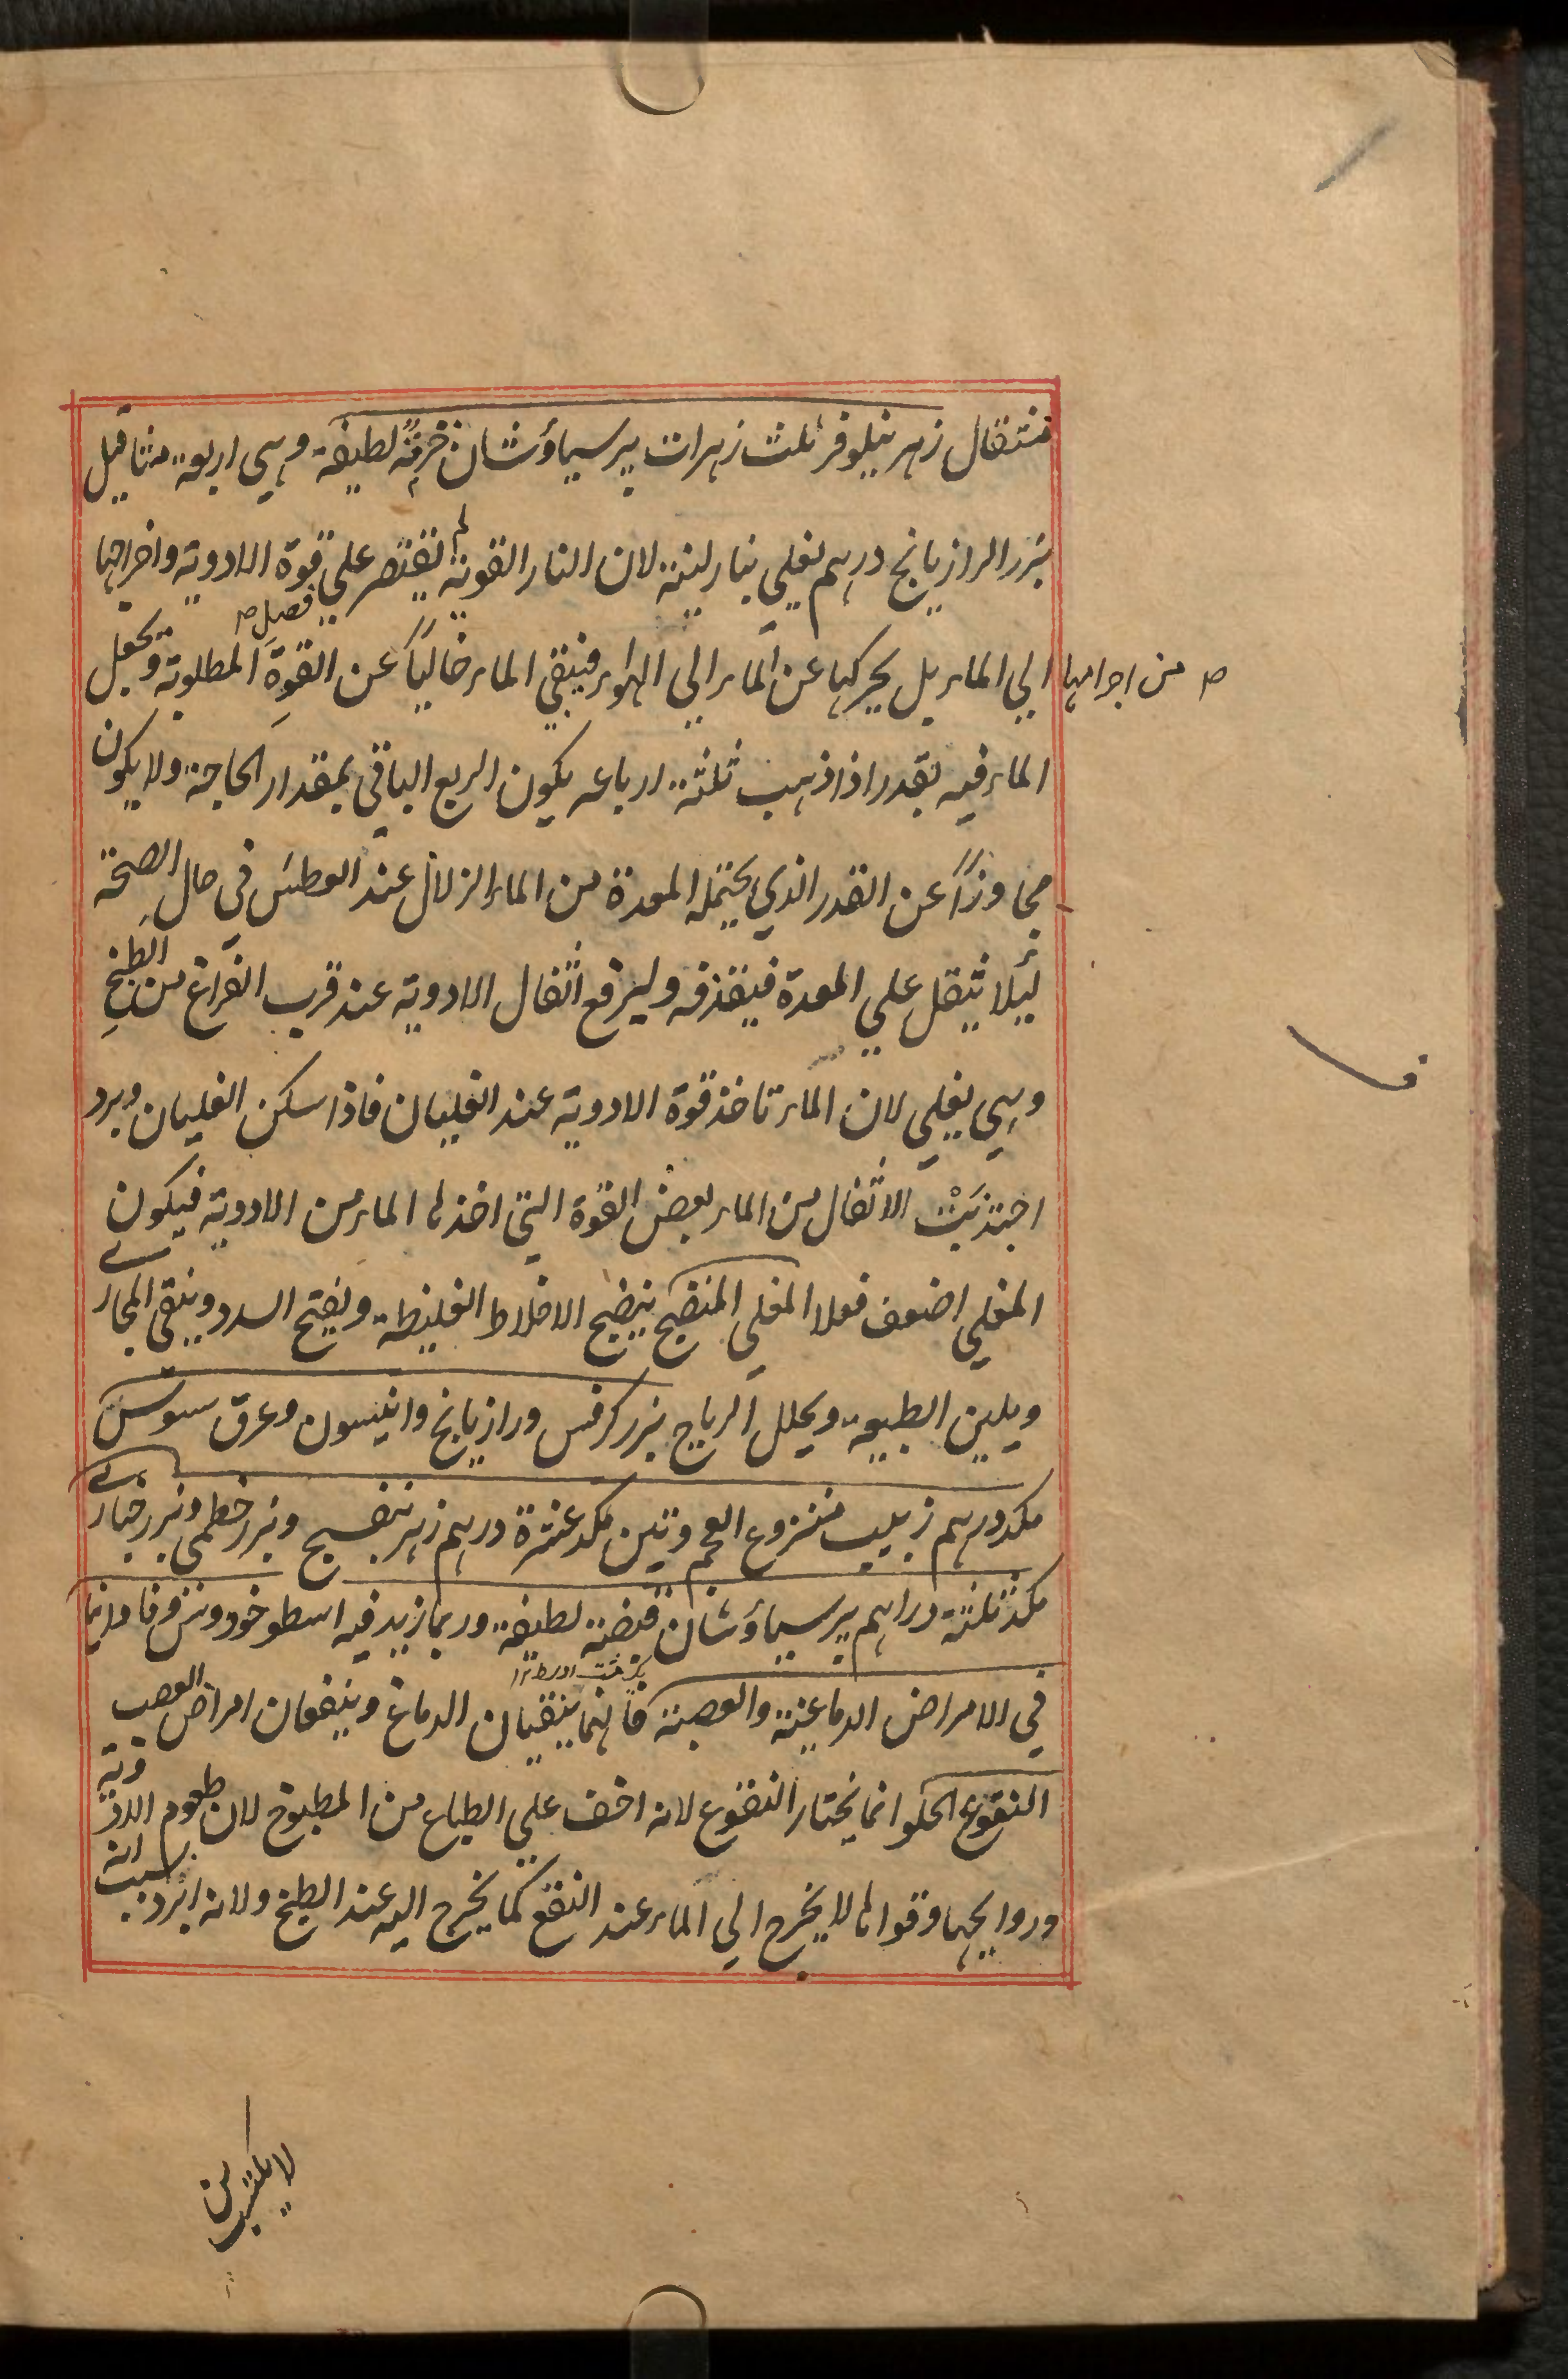 مثقال زهر نيلوفر ثلث زهرات پرسياؤشان حزمة لطيفة وهي اربعة مثاقيل
بزر الرازيانج درهم يغلي بنار لينة لان النار القوية لم تقتصر علي قوة الادوية واخراجها
فصل
الي الماء بل يحركها عن الماء الي الهواء فيبقي الماء خالياً عن القوة المطلوبة ويجعل
من اجرامها
الماء فيه بقدر اذا ذهب ثلثة ارباعه يكون الربع الباقي بمقدار الحاجة ولا يكون
مجاوزاً عن القدر الذي يحتمله المعدة من الماء الزلال عند العطش في حال الصحة
لئيلا يثقل علي المعدة فيقذفه وليرفع اثفال الادوية عند قرب الفراغ من الطبخ
وهي يغلي لان الماء تاخذ قوة الادوية عند الغليان فاذا سكن الغليان وبرد
اجتذبت الاثفال من الماء بعض القوة التي اخذها الماء من الادوية فيكون
المغلي اضعف فعلا المغلي المنضج ينضج الاخلاط الغليظة ويفتح السدد وينقي المجاري
ويلين الطبيعة ويحلل الرياح بزر كرفس ورازيانج وانيسون وعرق سوس
مكد درهم زبيب منزوع العجم وتين مكد عشرة درهم زهر بنفسج وبزر خطمي وبزر خبازي
مكد ثلثة دراهم پرسياؤشان قبضة لطيفة وربما زيد فيه اسطوخودوس وفاوانيا
في الامراض الدماغية والعصبية فانهما ينقيان الدماغ وينفعان امراض العصب
النقوع الحلو انما يختار النقوع لانه اخف علي الطباع من المطبوخ لان طعوم الادوية
وروايحها وقواها لا يخرج الي الماء عند النقع كما يخرج اليه عند الطبخ ولانه ابرد بسبب انه
لا يكتسب من